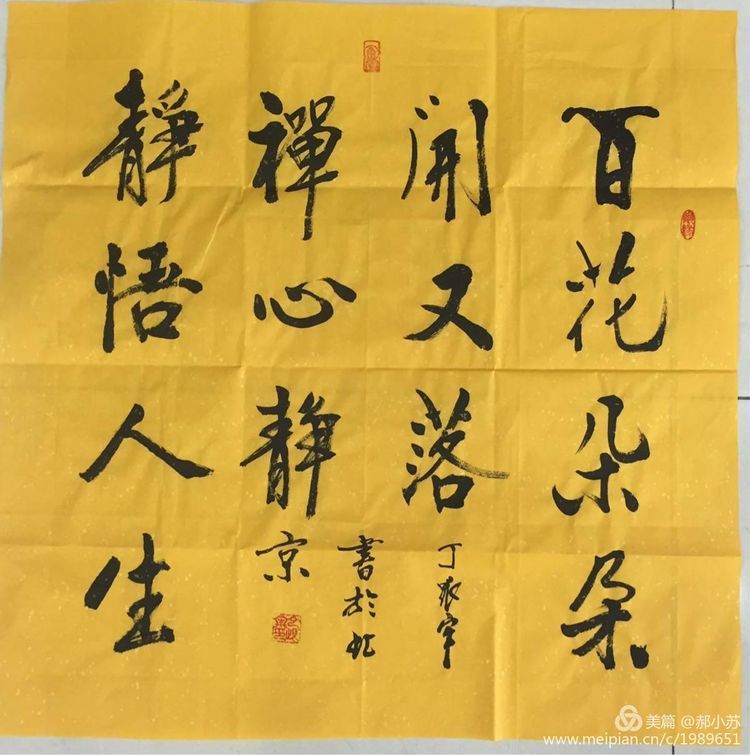 百花朵朵
開又落
禪心靜
靜悟人生
丁 宇
書於北
京
美篇 @郝小苏
www.meipian.cn/c/1989651